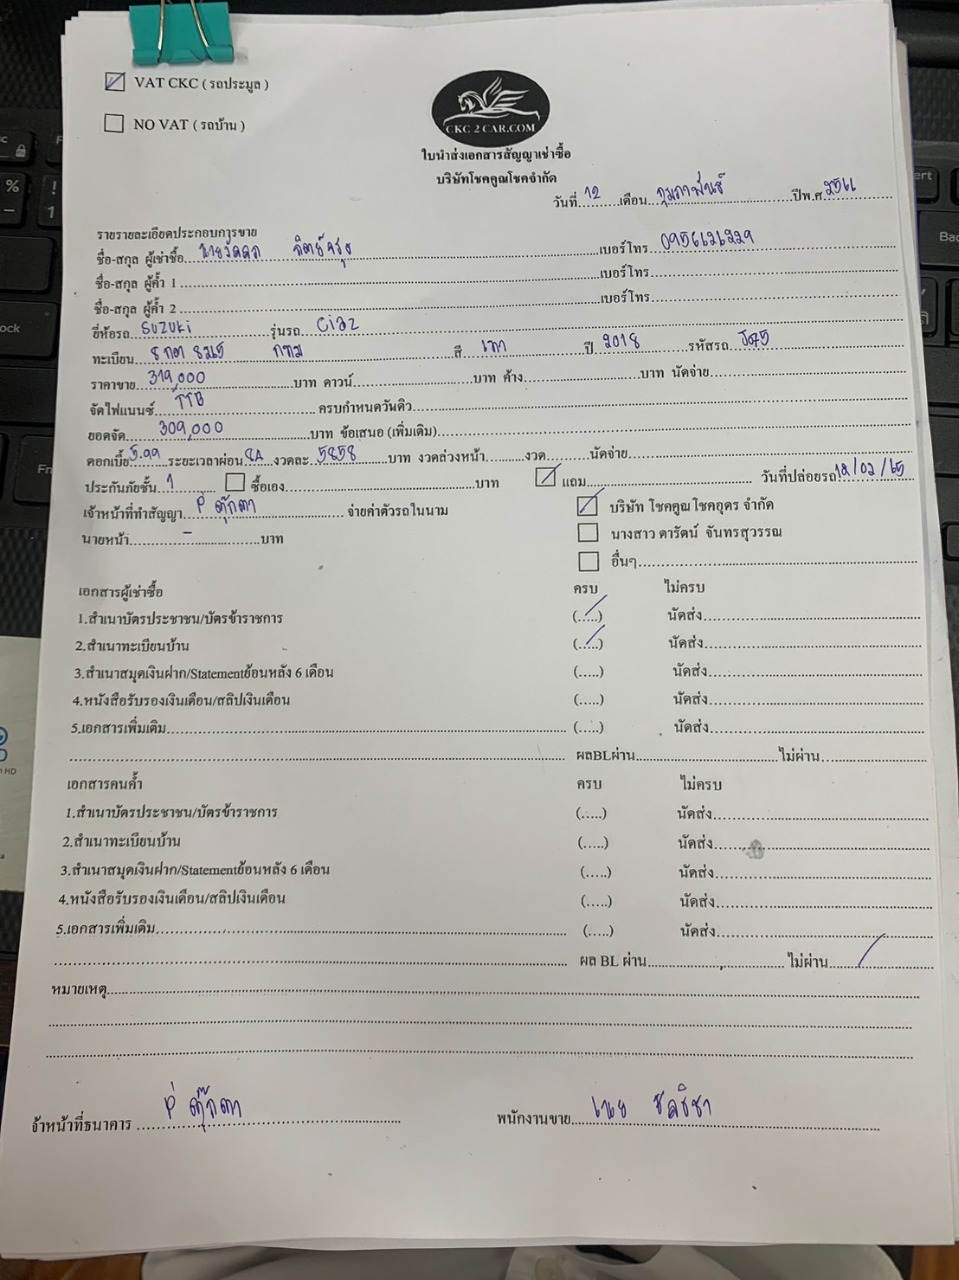 VAT CKC ( รถประมูล )
NO VAT ( รถบ้าน )
CKC 2 CAR.COM
ใบนำส่งเอกสารสัญญาเช่าซื้อ
บริษัทโชคคูณโชคจำกัด
วันที่ 12 เดือน กุมภาพันธ์ ปีพ.ศ. 2566
รายรายละเอียดประกอบการขาย
ชื่อ-สกุล ผู้เช่าซื้อ เบอร์โทร 0956126229
ชื่อ-สกุล ผู้ค้ำ 1 เบอร์โทร
ชื่อ-สกุล ผู้ค้ำ 2 เบอร์โทร
ยี่ห้อรถ SUZUKi รุ่นรถ Ciaz
ทะเบียน กทม สี เทา ปี 2018 รหัสรถ J075
ราคาขาย 319,000 บาท ดาวน์ บาท ค้าง บาท นัดจ่าย
จัดไฟแนนซ์ TTB ครบกำหนดวันดิว
ยอดจัด 309,000 บาท ข้อเสนอ (เพิ่มเติม)
ดอกเบี้ย 5.99 ระยะเวลาผ่อน งวดละ 5858 บาท งวดล่วงหน้า งวด นัดจ่าย
ประกันภัยชั้น 1 ซื้อเอง บาท แถม วันที่ปล่อยรถ 12/02/65
เจ้าหน้าที่ทำสัญญา P ตุ๊กตา จ่ายค่าตัวรถในนาม บริษัท โชคคูณ โชคอุดร จำกัด
นายหน้า - บาท นางสาว ดารัตน์ จันทรสุวรรณ
อื่นๆ
เอกสารผู้เช่าซื้อ ครบ ไม่ครบ
1.สำเนาบัตรประชาชน/บัตรข้าราชการ (.....) นัดส่ง
2.สำเนาทะเบียนบ้าน (.....) นัดส่ง
3.สำเนาสมุดเงินฝาก/Statementย้อนหลัง 6 เดือน (.....) นัดส่ง
4.หนังสือรับรองเงินเดือน/สลิปเงินเดือน (.....) นัดส่ง
5.เอกสารเพิ่มเติม (.....) นัดส่ง
ผลBLผ่าน ไม่ผ่าน
เอกสารคนค้ำ ครบ ไม่ครบ
1.สำเนาบัตรประชาชน/บัตรข้าราชการ (.....) นัดส่ง
2.สำเนาทะเบียนบ้าน (.....) นัดส่ง
3.สำเนาสมุดเงินฝาก/Statementย้อนหลัง 6 เดือน (.....) นัดส่ง
4.หนังสือรับรองเงินเดือน/สลิปเงินเดือน (.....) นัดส่ง
5.เอกสารเพิ่มเติม (.....) นัดส่ง
ผล BL ผ่าน ไม่ผ่าน
หมายเหตุ
จ้าหน้าที่ธนาคาร P ตุ๊กตา พนักงานขาย เนย ชลธิชา